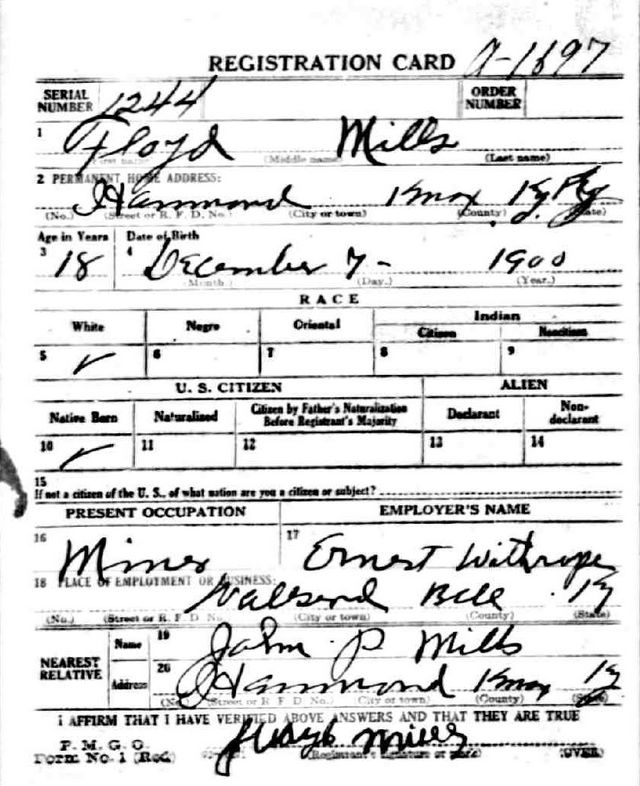 REGISTRATION CARD A-1697
SERIAL NUMBER 1244 ORDER NUMBER
1 Floyd Mills
(First name) (Middle name) (Last name)
2 PERMANENT HOME ADDRESS:
Hammond Knox Ky
(No.) (Street or R. F. D. No.) (City or town) (County) (State)
Age in Years Date of Birth
3 18 4 December 7 - 1900
(Month.) (Day.) (Year.)
RACE
White Negro Oriental Indian
Citizen Noncitizen
5 ✓ 6 7 8 9
U. S. CITIZEN ALIEN
Native Born Naturalized Citizen by Father's Naturalization Before Registrant's Majority Declarant Non-declarant
10 ✓ 11 12 13 14
15
If not a citizen of the U. S., of what nation are you a citizen or subject?
PRESENT OCCUPATION EMPLOYER'S NAME
16 Miner 17 Ernest
18 PLACE OF EMPLOYMENT OR BUSINESS:
Wallsend Bell Ky
(No.) (Street or R. F. D. No.) (City or town) (County) (State)
NEAREST RELATIVE
Name 19 John P Mills
Address 20 Hammond Knox Ky
(No.) (Street or R. F. D. No.) (City or town) (County) (State)
I AFFIRM THAT I HAVE VERIFIED ABOVE ANSWERS AND THAT THEY ARE TRUE
P. M. G. O.
Form No. 1 (Red) Floyd Mills
(Registrant's signature or mark) (OVER)